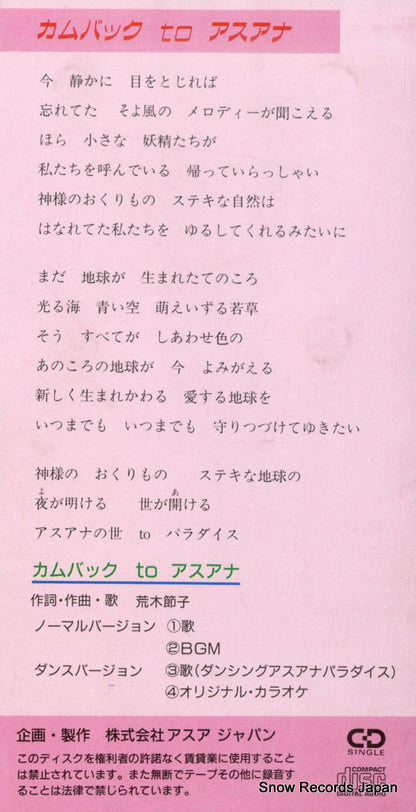 カムバック to アスアナ
今　静かに　目をとじれば
忘れてた　そよ風の　メロディーが聞こえる
ほら　小さな　妖精たちが
私たちを呼んでいる　帰っていらっしゃい
神様のおくりもの　ステキな自然は
はなれてた私たちを　ゆるしてくれるみたいに
まだ　地球が　生まれたてのころ
光る海　青い空　萌えいずる若草
そう　すべてが　しあわせ色の
あのころの地球が　今　よみがえる
新しく生まれかわる　愛する地球を
いつまでも　いつまでも　守りつづけてゆきたい
神様の　おくりもの　　ステキな地球の
夜(よ)が明ける　　世が開(あ)ける
アスアナの世　to　パラダイス
カムバック to アスアナ
作詞・作曲・歌　荒木節子
ノーマルバージョン　①歌
②BGM
ダンスバージョン　③歌(ダンシングアスアナパラダイス)
④オリジナル・カラオケ
企画・製作　株式会社アスア ジャパン
CD SINGLE
このディスクを権利者の許諾なく賃貸業に使用すること
は禁止されています。また無断でテープその他に録音す
ることは法律で禁じられています。
COMPACT
disc
DIGITAL AUDIO
Snow Records Japan